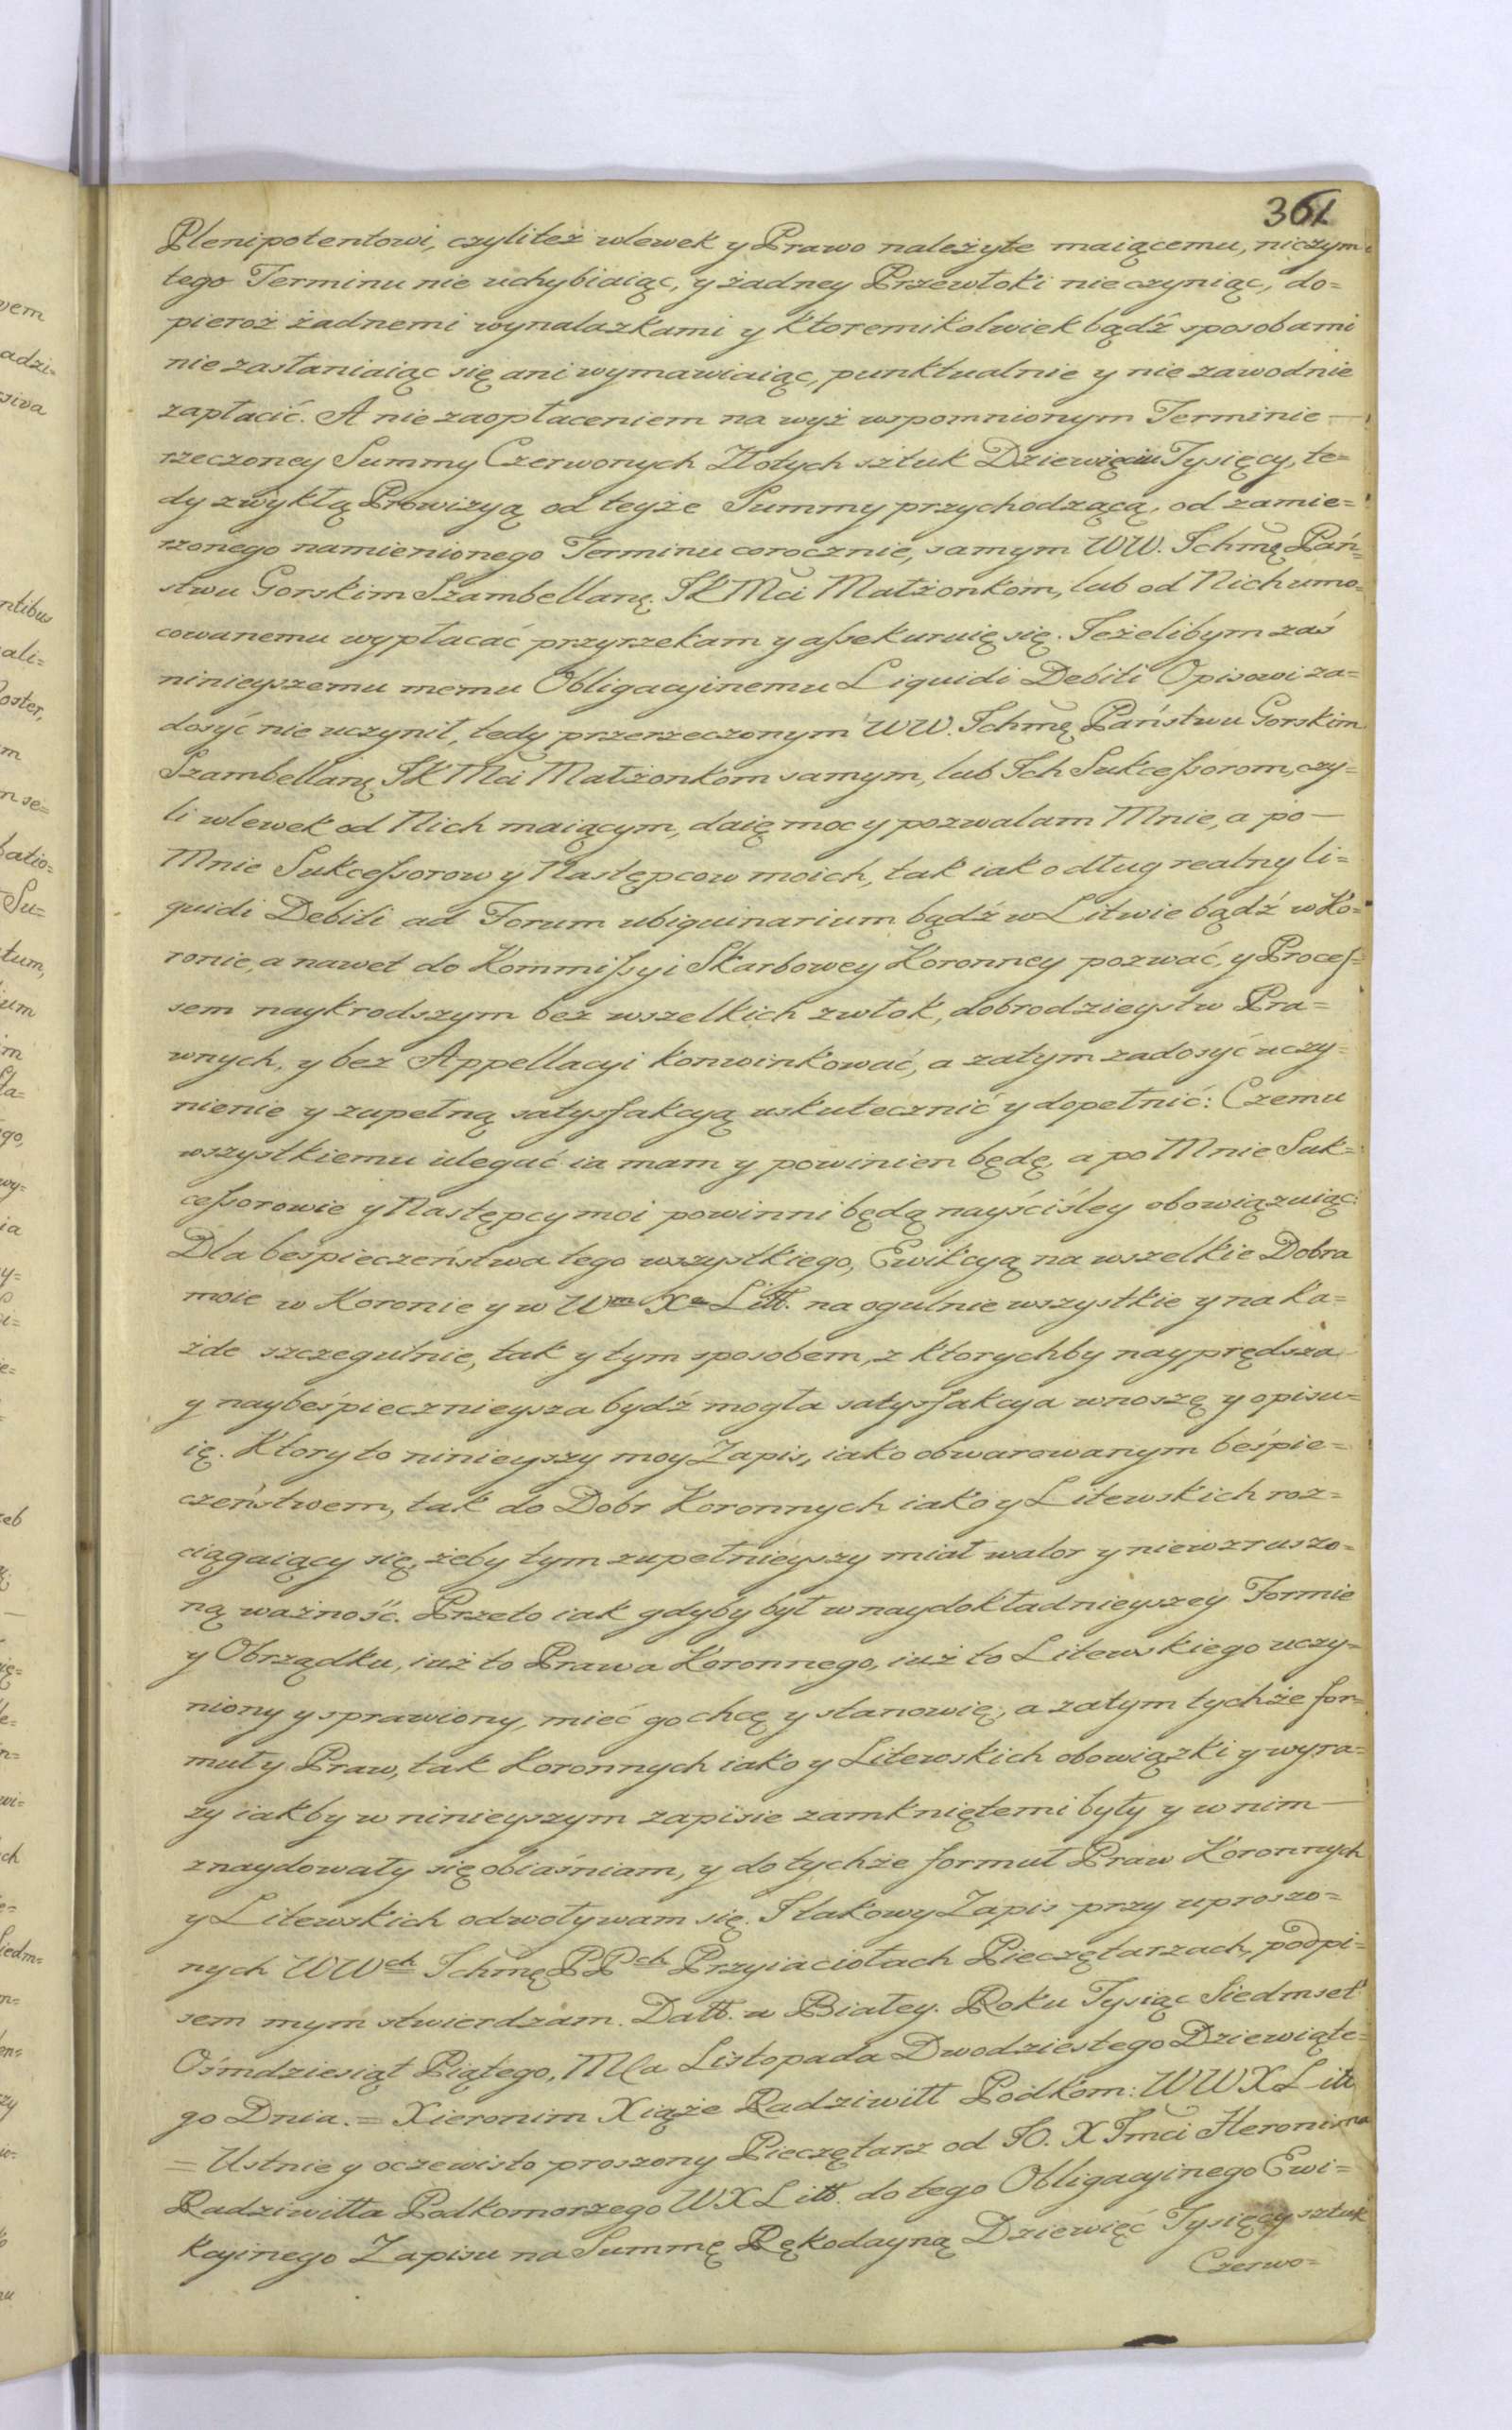 361
Plenipotentowi, czyliteż wlewek y Prawo należyte maiącemu, niczym
tego Terminu nie uchybiaiąc, y żadney Przewłoki nieczyniąc, do=
pieroż żadnemi wynalazkami y ktoremikolwiek bądź sposobami
niezasłaniaiąc się ani wymawiaiąc, punktualnie y nie zawodnie
zapłacić. A nie zaopłaceniem na wyż wspomnionym Terminie —
rzeczoney Summy Czerwonych Złotych sztuk Dziewięciu Tysięcy, te=
dy zwykłą Prowizyą od teyże Summy przychodzącą, od zamie=
rzonego namienionego Terminu corocznie, samym WW. Ichmę Pań=
stwu Gorskim Szambellanę JKMci Małżonkom, lub od Nich umo=
cowanemu wypłacać przyrzekam y assekuruię się. Jeżelibym zaś
ninieyszemu memu Obligacyinemu Liquidi Debiti Opisowi za=
dosyć nie uczynił, tedy przerzeczonym WW. Ichmę Państwu Gorskim
Szambellanę JKMci Małżonkom samym, lub Ich Sukcessorom, czy=
li wlewek od Nich maiącym, daię moc y pozwalam Mnie, a po —
Mnie Sukcessorow y Następcow moich, tak iak o dług realny li=
quidi Debiti ad Forum ubiquinarium bądź w Litwie bądź w Ko=
ronie, a nawet do Kommissyi Skarbowey Koronney pozwać, y Proces=
sem naykrodszym bez wszelkich zwłok, dobrodzieystw Pra=
wnych, y bez Appellacyi konwinkować, a zatym zadosyć uczy=
nienie y zupełną satysfakcyą uskutecznić y dopełnić: Czemu
wszystkiemu ulegać ia mam y powinien będę, a po Mnie Suk=
cessorowie y Następcy moi powinni będą nayściśley obowiązuiąc:
Dla beśpieczeństwa tego wszystkiego, Ewikcyą na wszelkie Dobra
moie w Koronie y w Wm Xa Litt. na ogulnie wszystkie y na ka=
żde szczegulnie, tak y tym sposobem, z ktorychby nayprędsza
y naybeśpiecznieysza bydź mogła satysfakcya wnoszę y opisu=
ię. Ktory to ninieyszy moy Zapis, iako obwarowanym beśpie=
czeństwem, tak do Dobr Koronnych iako y Litewskich roz=
ciągaiący się, żeby tym zupełnieyszy miał walor y niewzruszo=
ną ważność. Przeto iak gdyby był w naydokładnieyszey Formie
y Obrządku, iuż to Prawa Koronnego, iuż to Litewskiego uczy=
niony y sprawiony, mieć go chcę y stanowię, a zatym tychże for=
muły Praw, tak Koronnych iako y Litewskich obowiązki y wyra=
zy iakby w ninieyszym zapisie zamkniętemi były y w nim —
znaydowały się obiaśniam, y do tychże formuł Praw Koronnych
y Litewskich odwoływam się. Jtakowy Zapis przy uproszo=
nych WWch Ichmę PPch Przyiaciołach Pieczętarzach, podpi=
sem mym stwierdzam. Datt. w Białey. Roku Tysiąc Siedmset
Ośmdziesiąt Piątego, Mca Listopada Dwodziestego Dziewiąte=
go Dnia. = Xieronim Xiąże Radziwiłł Podkom: WWXLitt
= Ustnie y oczewisto proszony Pieczętarz od JO. X Jmci Hieronima
Radziwiłła Podkomorzego WXLitt. do tego Obligacyinego Ewi=
kcyinego Zapisu na Summę Rękodayną Dziewięć Tysięcy sztuk
Czerwo=